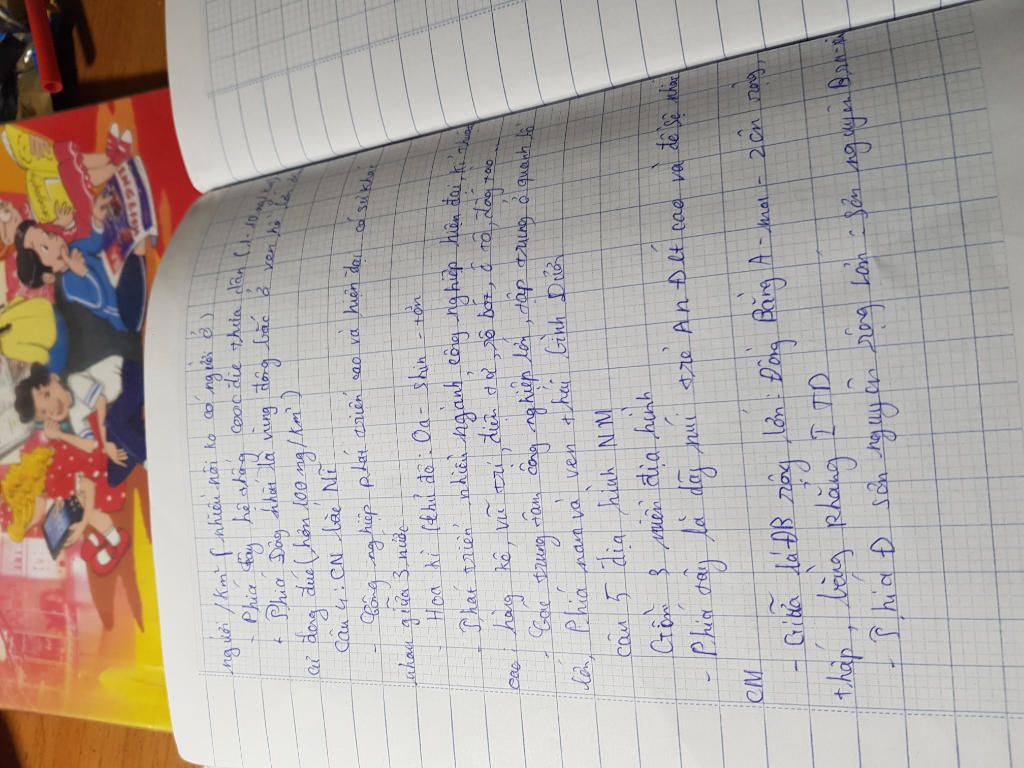 người /km² (nhiều nơi ko có người ở)
- Phía tây hệ thống cooc đie thưa dân (1-10 ng/k
+ Phía Đông khơi là vùng đông bắc ở ven hồ lớ
cư đông đúc (hơn 100 ng/km²)
Câu 4: CN Bắc Mĩ
- Công nghiệp phát triển cao và hiện đại có sự khác
nhau giữa 3 nước
- Hoa kì (thủ đô: Oa - shin - tơn
- Phát triển nhiều ngành công nghiệp hiện đại kĩ thuậ
cao: hàng kô, vũ trụ, điện tử, rô bốt, ô tô, đóng tàu ...
- Các trung tâm công nghiệp lớn, tập trung ở quanh hồ
lớn, Phía nam và ven thái Bình Dươn
câu 5 địa hình NM
Gồm 3 miền địa hình
- Phía tây là dãy núi trẻ An Đét cao và đồ sộ nhất
CM
- Giữa là ĐB rộng lớn: Đồng Bằng A - ma - zôn rộng,
thấp, bằng phẳng I TD
- Phía Đ sơn nguyên rộng lớn: sơn nguyên B